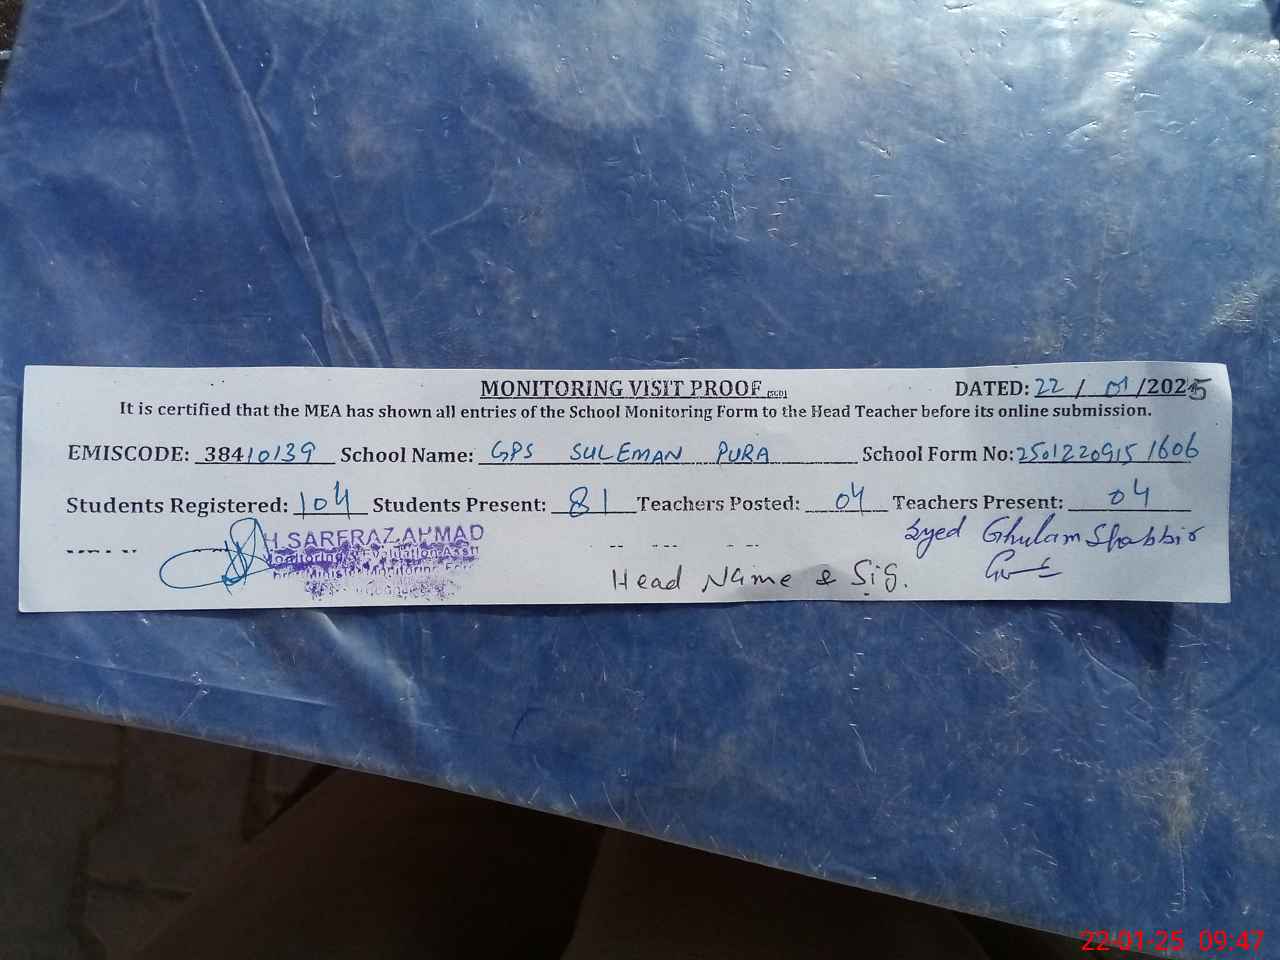 MONITORING VISIT PROOF (SGD) DATED: 22 / 01 /2025
It is certified that the MEA has shown all entries of the School Monitoring Form to the Head Teacher before its online submission.
EMISCODE: 38410139 School Name: GPS SULEMAN PURA School Form No: 25012209151606
Students Registered: 104 Students Present: 81 Teachers Posted: 04 Teachers Present: 04
H SARFRAZ AHMAD Syed Ghulam Shabbir
Monitoring & Evaluation Asstt
Head Name & Sig.
22-01-25 09:47